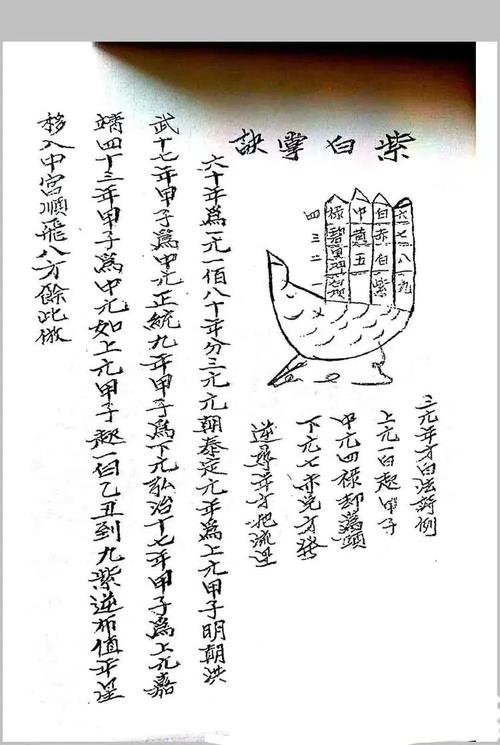 紫白掌訣
六七八九
白赤白紫
中黃五
祿碧
四三二一
三元年才白法例
上元一白起甲子
中元四祿却為頭
下元七赤兌方發
逆尋年方把流星
六十年為一元一佰八十年分三元元朝泰定元年為上元甲子明朝洪
武十七年甲子為中元正統九年甲子為下元弘治十七年甲子為上元嘉
靖四十三年甲子為中元如上元甲子起一白乙丑到九紫逆布值年星
移入中宮順飛八方餘此倣